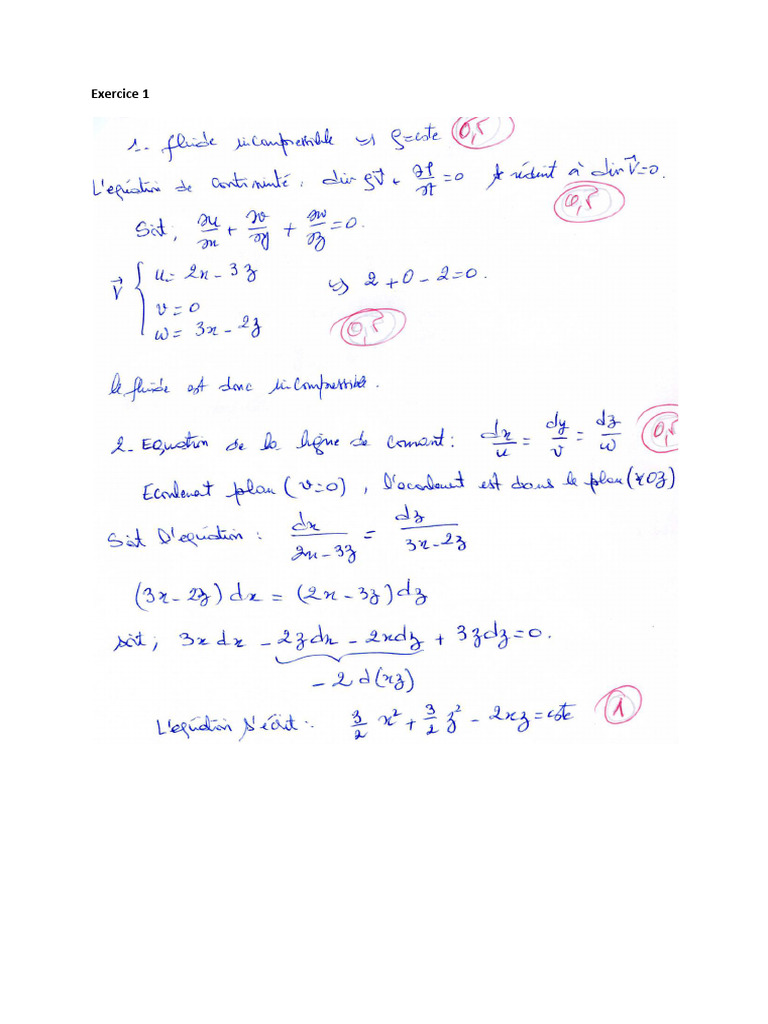 Exercice 1
1- fluide incompressible ↪ ρ=cste 0,5
L'equation de continuité : div ρV⃗ + ∂ρ/∂t = 0 se réduit à div V⃗=0.
0,5
Soit ; ∂u/∂x + ∂v/∂y + ∂w/∂z = 0.
V⃗ { u= 2x - 3z ↪ 2+0-2=0.
v=0
w= 3x-2z 0,5
le fluide est donc incompressible.
2- Equation de la ligne de courant : dx/u = dy/v = dz/w 0,5
Ecoulement plan (v=0), l'ecoulement est dans le plan (xOz)
Soit l'equation : dx/(2x-3z) = dz/(3x-2z)
(3x-2z)dx = (2x-3z)dz
soit ; 3x dx - 2zdx - 2xdz + 3zdz=0.
-2 d(xz)
L'equation s'écrit : 3/2 x² + 3/2 z² - 2xz = cste 1